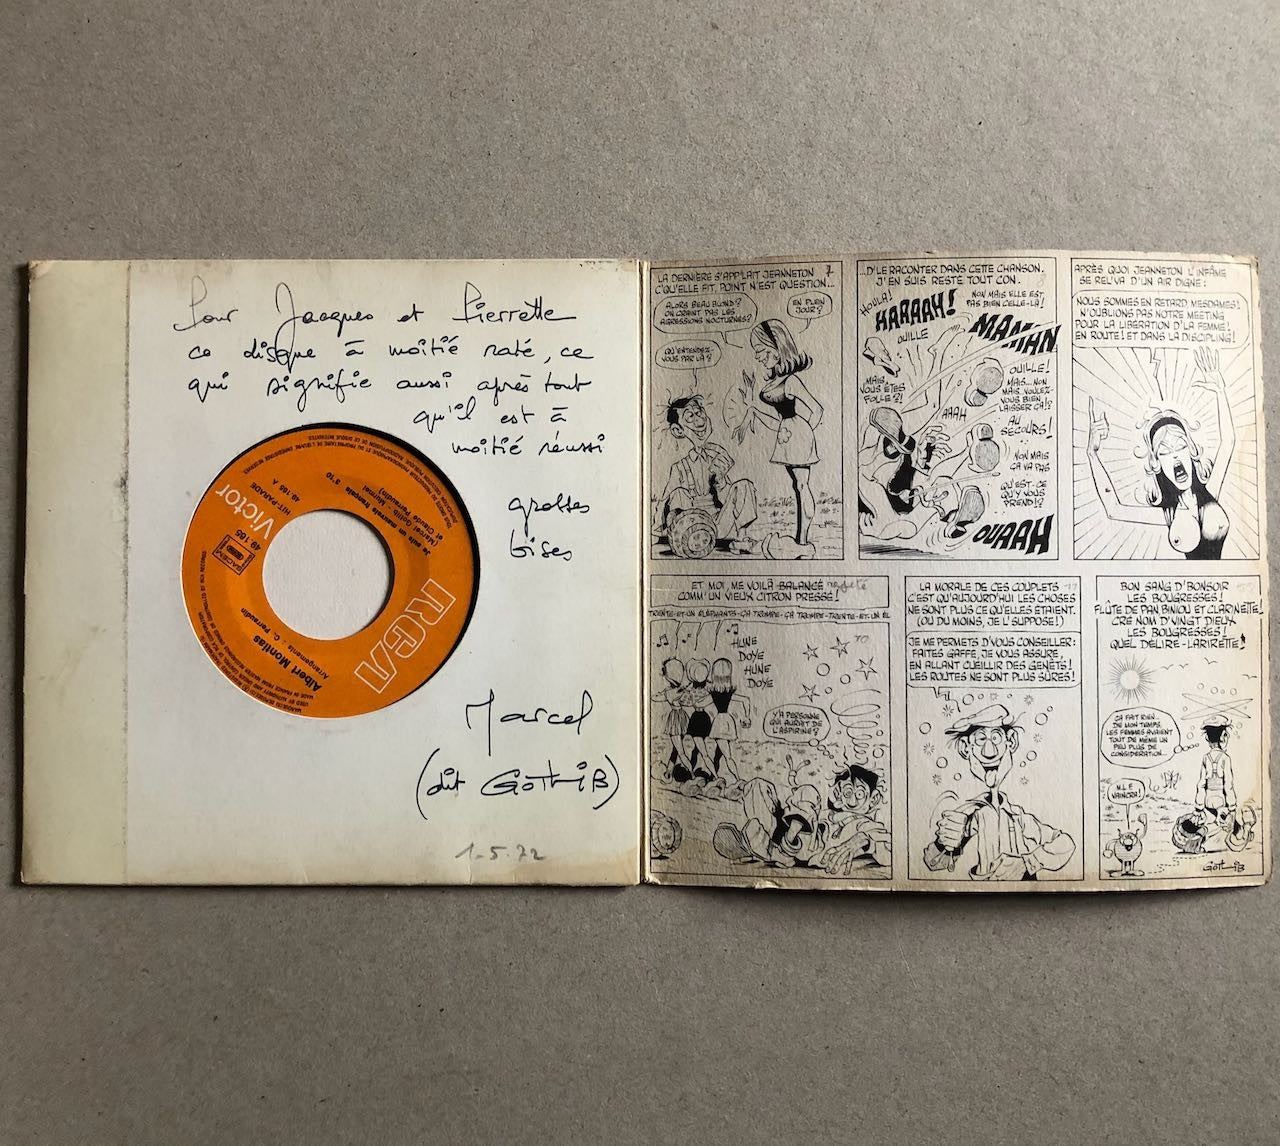 Pour Jacques et Pierrette
ce disque à moitié raté, ce
qui signifie aussi après tout
qu'il est à
moitié réussi
grosses
bises
Marcel
(dit GotliB)
1.5.72
RCA
Victor
HIT-PARADE
49.165 A
49.165
SACEM
Je suis un mauvais français 3'10
(Marcel Gotlib - Murznef
et Claude Perraudin)
Albert Montias
Arrangements : C. Perraudin
LA DERNIÈRE S'APP'LAIT JEANNETON
C'QU'ELLE FIT, POINT N'EST QUESTION...
7
ALORS BEAU BLOND!?
ON CRAINT PAS LES
AGRESSIONS NOCTURNES?
EN PLEIN
JOUR?
QU'ENTENDEZ-
VOUS PAR LÀ?
...D'LE RACONTER DANS CETTE CHANSON.
J'EN SUIS RESTÉ TOUT CON.
8
HOULA!
HAAAAAH!
OUILLE
NON MAIS ELLE EST
PAS BIEN CELLE-LÀ!
MAMAN
MAIS...
VOUS ÊTES
FOLLE?!
AAAH
OUILLE!
MAIS...NON
MAIS, VOULEZ-
VOUS BIEN
LAISSER ÇA!?
AU
SECOURS!
NON MAIS
ÇA VA PAS
QU'EST-CE
QU'Y VOUS
PREND!?
OUAAH
APRÈS QUOI JEANNETON L'INFÂME
SE REL'VA D'UN AIR DIGNE:
NOUS SOMMES EN RETARD MESDAMES!
N'OUBLIONS PAS NOTRE MEETING
POUR LA LIBÉRATION D'LA FEMME!
EN ROUTE! ET DANS LA DISCIPLING!
ET MOI, ME VOILÀ BALANCÉ rejeté
COMM'UN VIEUX CITRON PRESSÉ!
TRENTE-ET-UN ÉLÉPHANTS-ÇA TROMPE-ÇA TROMPE-TRENTE-ET-UN ÉL
10
HUNE
DOYE
HUNE
DOYE
Y'A PERSONNE
QUI AURAIT DE
L'ASPIRINE?
LA MORALE DE CES COUPLETS
C'EST QU'AUJOURD'HUI LES CHOSES
NE SONT PLUS CE QU'ELLES ÉTAIENT.
(OU DU MOINS, JE L'SUPPOSE!)
11
JE ME PERMETS D'VOUS CONSEILLER:
FAITES GAFFE, JE VOUS ASSURE,
EN ALLANT CUEILLIR DES GENÊTS!
LES ROUTES NE SONT PLUS SÛRES!
BON SANG D'BONSOIR
LES BOUGRESSES!
FLÛTE DE PAN, BINIOU ET CLARINETTE!
CRE NOM D'VINGT DIEUX
LES BOUGRESSES!
QUEL DÉLIRE-LARIRETTE!
ÇA FAIT RIEN...
DE MON TEMPS,
LES FEMMES AVAIENT
TOUT DE MÊME UN
PEU PLUS DE
CONSIDÉRATION...
M.L.F.
VAINCRA!
GOTLIB